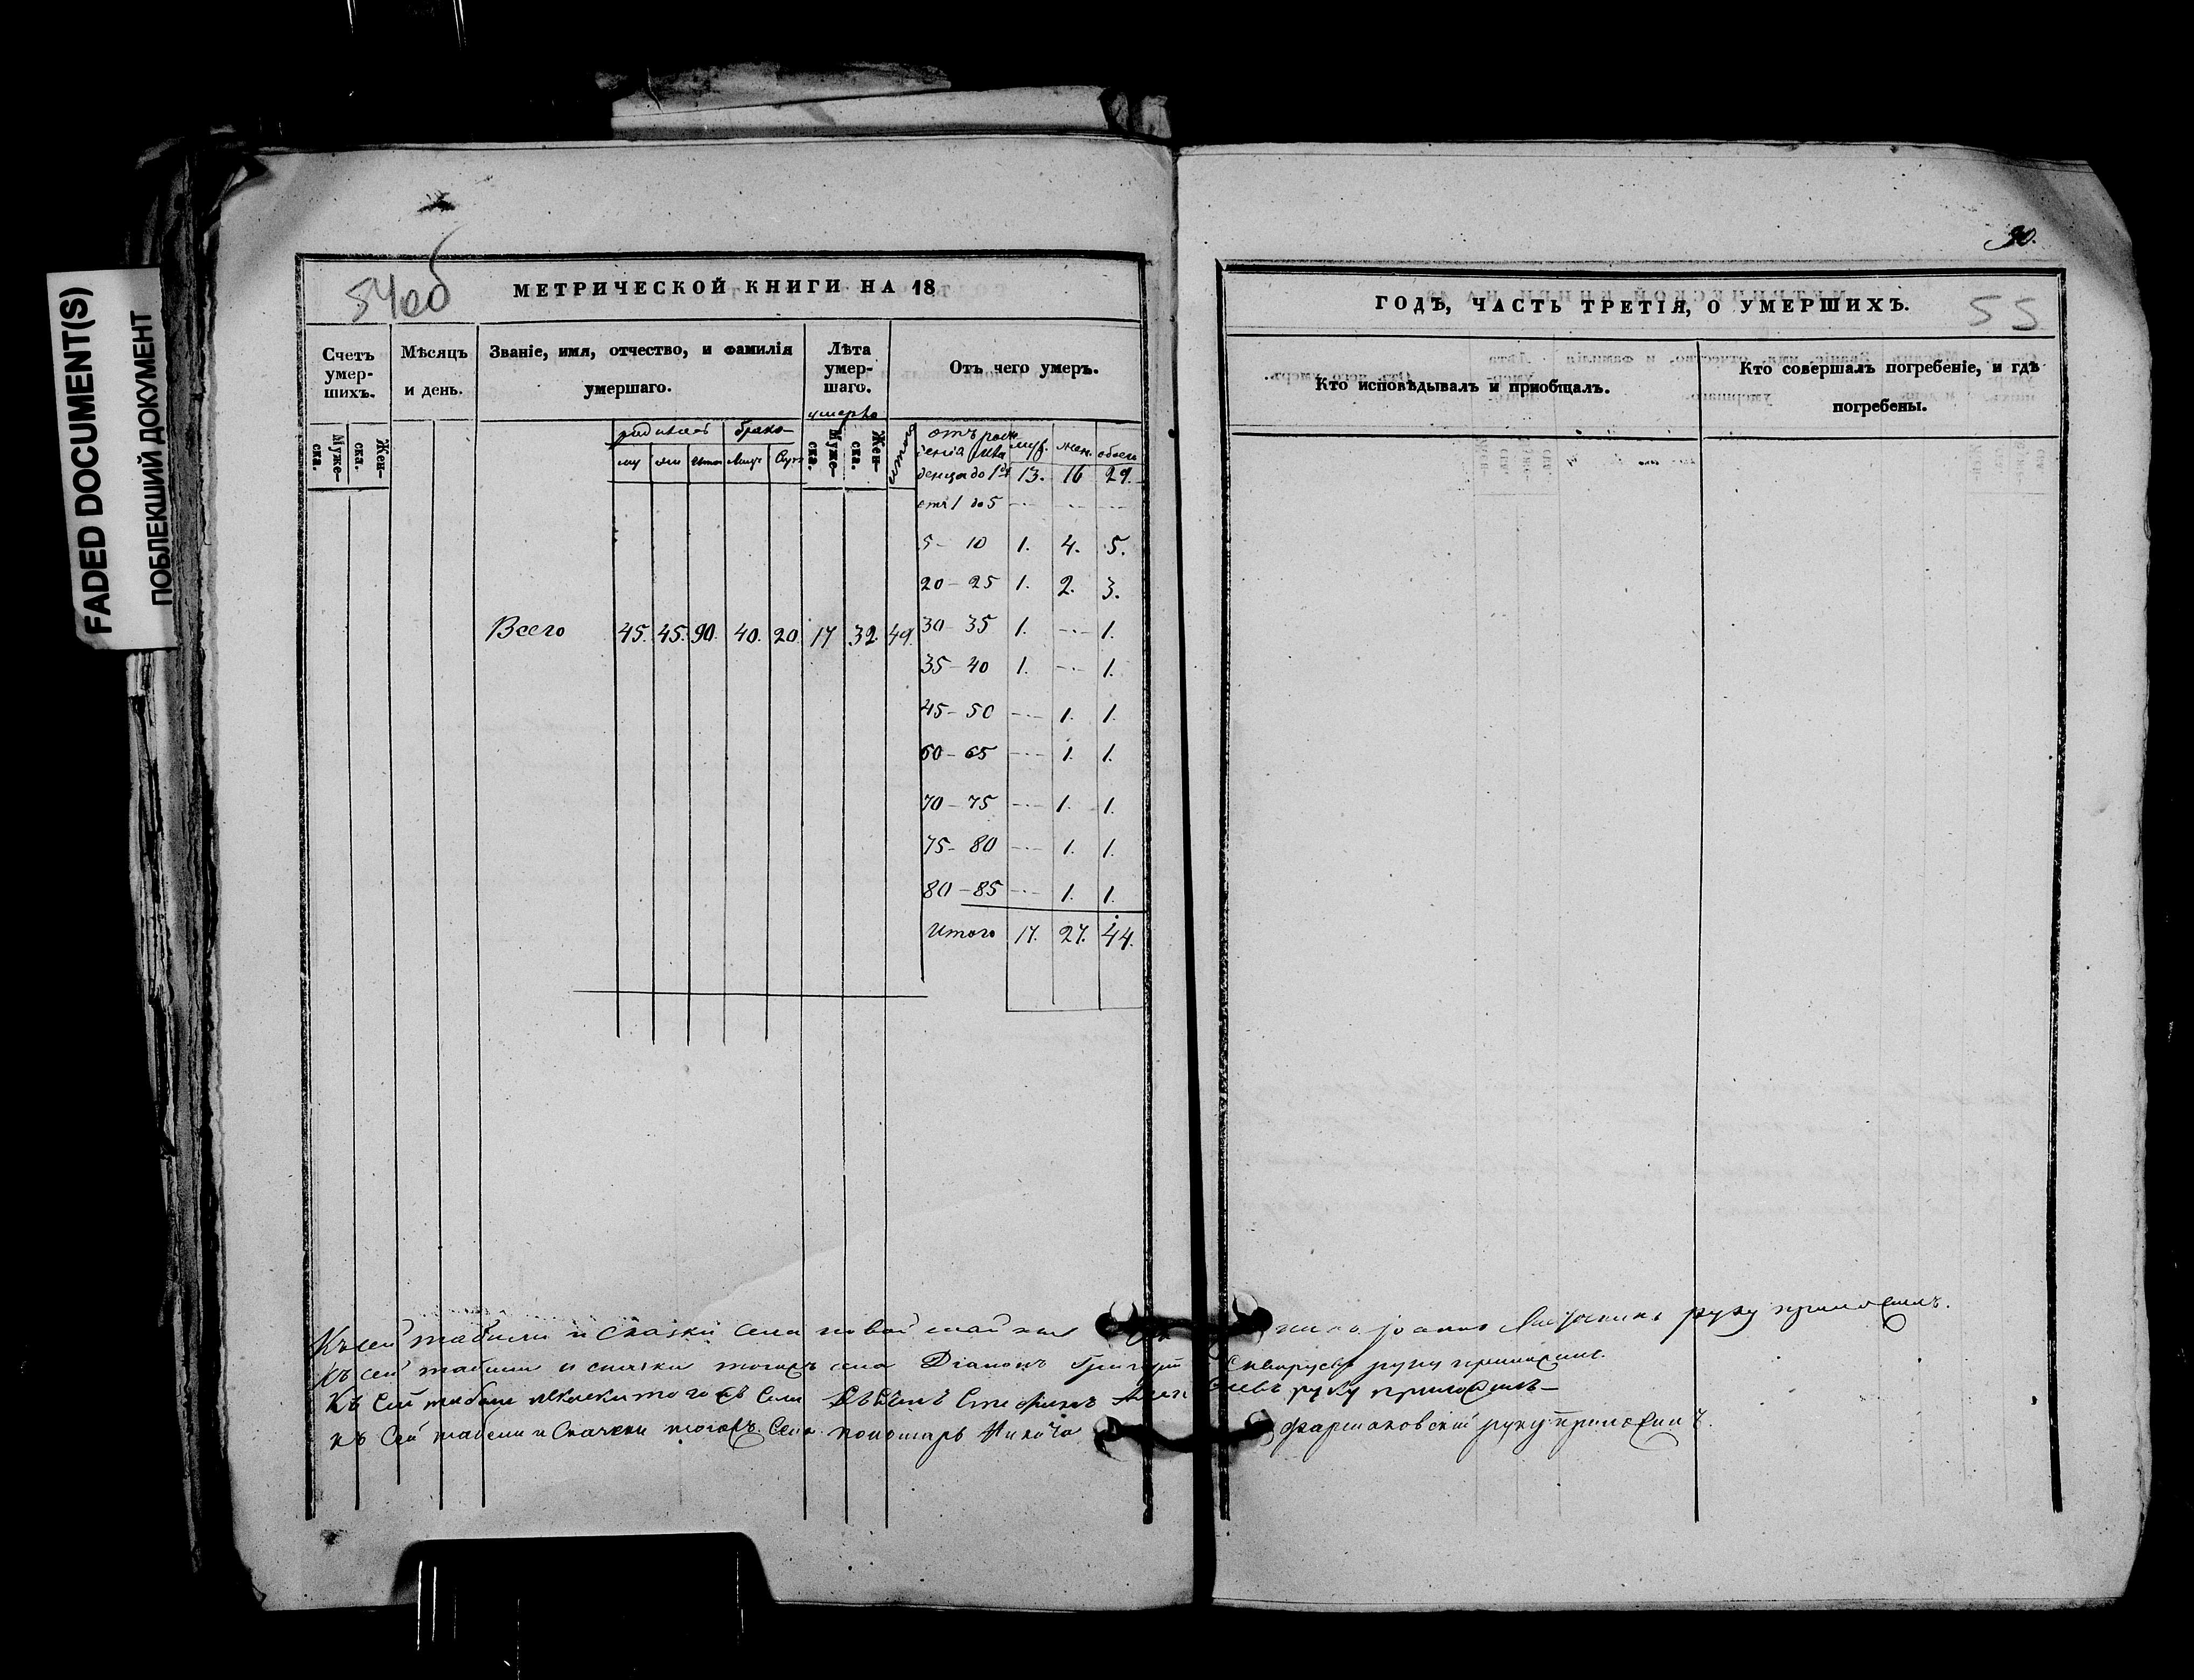 FADED DOCUMENT(S)
ПОБЛЕКШИЙ ДОКУМЕНТ
54об
МЕТРИЧЕСКОЙ КНИГИ НА 18
Счетъ умер-шихъ.
Мѣсяцъ и день.
Званіе, имя, отчество, и фамилія умершаго.
Лѣта умер-шаго.
Отъ чего умеръ.
Муже-ска.
Жен-ска.
умерло
Муже-ска.
Жен-ска.
итого
муж. жен. обоего
денца до 1го 13. 16 29.
отъ 1 до 5 -·- -·- -·-
5 - 10 1. 4. 5.
20 - 25 1. 2. 3.
30 - 35 1. -·- 1.
Всего 45. 45. 90. 40. 20 17 32. 49.
35 - 40 1. -·- 1.
45 - 50 -·- 1. 1.
60 - 65 -·- 1. 1.
70 - 75 -·- 1. 1.
75 - 80 -·- 1. 1.
80 - 85 -·- 1. 1.
Итого 17. 27. 44.
90.
ГОДЪ, ЧАСТЬ ТРЕТІЯ, О УМЕРШИХЪ.
55
Кто исповѣдывалъ и приобщалъ.
Кто совершалъ погребеніе, и гдѣ погребены.
Къ сей табели и сказки села руку приложилъ.
Къ сей табели и сказки тогожъ села Діаконъ Григорій руку приложилъ.
Къ сей табели села руку приложилъ
Къ сей табели и сказки тогожъ села пономарь Никита руку приложилъ.